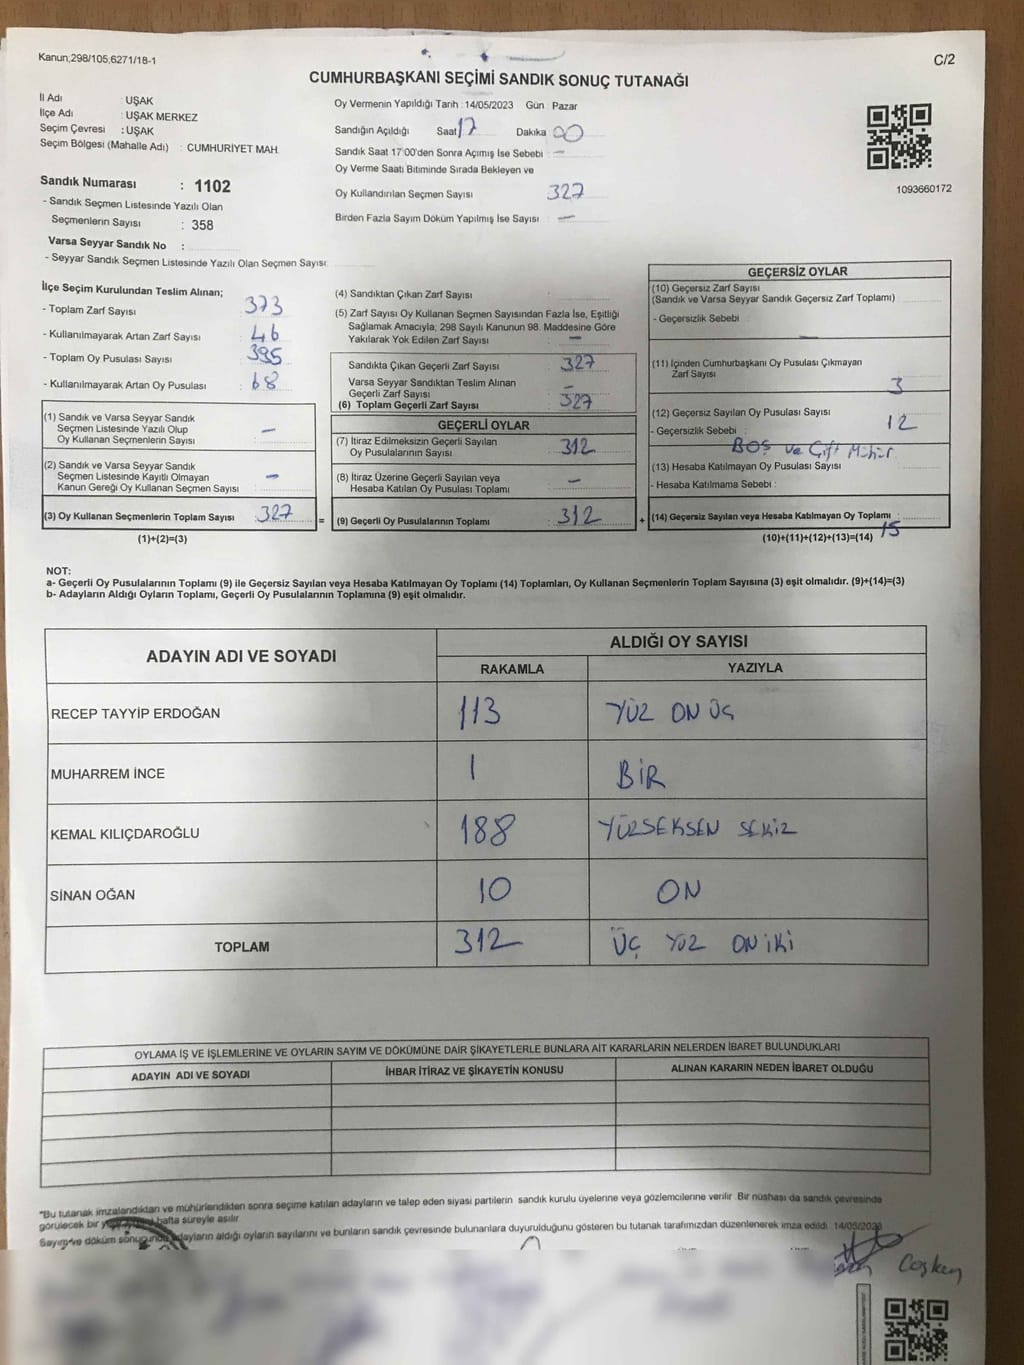 Kanun,298/105,6271/18-1
C/2
CUMHURBAŞKANI SEÇİMİ SANDIK SONUÇ TUTANAĞI
İl Adı : UŞAK
İlçe Adı : UŞAK MERKEZ
Seçim Çevresi : UŞAK
Seçim Bölgesi (Mahalle Adı) : CUMHURİYET MAH.
Sandık Numarası : 1102
- Sandık Seçmen Listesinde Yazılı Olan
Seçmenlerin Sayısı : 358
Varsa Seyyar Sandık No :
- Seyyar Sandık Seçmen Listesinde Yazılı Olan Seçmen Sayısı:
Oy Vermenin Yapıldığı Tarih : 14/05/2023 Gün : Pazar
Sandığın Açıldığı Saat 17 Dakika 00
Sandık Saat 17:00'den Sonra Açımış İse Sebebi : -
Oy Verme Saati Bitiminde Sırada Bekleyen ve
Oy Kullandırılan Seçmen Sayısı 327
Birden Fazla Sayım Döküm Yapılmış İse Sayısı : -
1093660172
İlçe Seçim Kurulundan Teslim Alınan;
- Toplam Zarf Sayısı : 373
- Kullanılmayarak Artan Zarf Sayısı : 46
- Toplam Oy Pusulası Sayısı : 395
- Kullanılmayarak Artan Oy Pusulası : 68
(1) Sandık ve Varsa Seyyar Sandık
Seçmen Listesinde Yazılı Olup
Oy Kullanan Seçmenlerin Sayısı : -
(2) Sandık ve Varsa Seyyar Sandık
Seçmen Listesinde Kayıtlı Olmayan
Kanun Gereği Oy Kullanan Seçmen Sayısı : -
(3) Oy Kullanan Seçmenlerin Toplam Sayısı : 327
(1)+(2)=(3)
(4) Sandıktan Çıkan Zarf Sayısı :
(5) Zarf Sayısı Oy Kullanan Seçmen Sayısından Fazla İse, Eşitliği
Sağlamak Amacıyla, 298 Sayılı Kanunun 98. Maddesine Göre
Yakılarak Yok Edilen Zarf Sayısı : -
Sandıkta Çıkan Geçerli Zarf Sayısı : 327
Varsa Seyyar Sandıktan Teslim Alınan
Geçerli Zarf Sayısı : -
(6) Toplam Geçerli Zarf Sayısı : 327
GEÇERLİ OYLAR
(7) İtiraz Edilmeksizin Geçerli Sayılan
Oy Pusulalarının Sayısı : 312
(8) İtiraz Üzerine Geçerli Sayılan veya
Hesaba Katılan Oy Pusulası Toplamı : -
= (9) Geçerli Oy Pusulalarının Toplamı : 312 +
GEÇERSİZ OYLAR
(10) Geçersiz Zarf Sayısı
(Sandık ve Varsa Seyyar Sandık Geçersiz Zarf Toplamı) :
- Geçersizlik Sebebi : -
(11) İçinden Cumhurbaşkanı Oy Pusulası Çıkmayan
Zarf Sayısı 3
(12) Geçersiz Sayılan Oy Pusulası Sayısı 12
- Geçersizlik Sebebi : BOŞ ve Çift Mühür
(13) Hesaba Katılmayan Oy Pusulası Sayısı :
- Hesaba Katılmama Sebebi :
(14) Geçersiz Sayılan veya Hesaba Katılmayan Oy Toplamı : 15
(10)+(11)+(12)+(13)=(14)
NOT:
a- Geçerli Oy Pusulalarının Toplamı (9) ile Geçersiz Sayılan veya Hesaba Katılmayan Oy Toplamı (14) Toplamları, Oy Kullanan Seçmenlerin Toplam Sayısına (3) eşit olmalıdır. (9)+(14)=(3)
b- Adayların Aldığı Oyların Toplamı, Geçerli Oy Pusulalarının Toplamına (9) eşit olmalıdır.
ADAYIN ADI VE SOYADI
ALDIĞI OY SAYISI
RAKAMLA YAZIYLA
RECEP TAYYİP ERDOĞAN 113 YÜZ ON ÜÇ
MUHARREM İNCE 1 BİR
KEMAL KILIÇDAROĞLU 188 YÜZSEKSEN SEKİZ
SİNAN OĞAN 10 ON
TOPLAM 312 ÜÇ YÜZ ON İKİ
OYLAMA İŞ VE İŞLEMLERİNE VE OYLARIN SAYIM VE DÖKÜMÜNE DAİR ŞİKAYETLERLE BUNLARA AİT KARARLARIN NELERDEN İBARET BULUNDUKLARI
ADAYIN ADI VE SOYADI İHBAR İTİRAZ VE ŞİKAYETİN KONUSU ALINAN KARARIN NEDEN İBARET OLDUĞU
"Bu tutanak imzalandıktan ve mühürlendikten sonra seçime katılan adayların ve talep eden siyasi partilerin sandık kurulu üyelerine veya gözlemcilerine verilir. Bir nüshası da sandık çevresinde
görülecek bir hafta süreyle asılır.
Sayım ve döküm sonucunda adayların aldığı oyların sayılarını ve bunların sandık çevresinde bulunanlara duyurulduğunu gösteren bu tutanak tarafımızdan düzenlenerek imza edildi. 14/05/2023
Coşkun